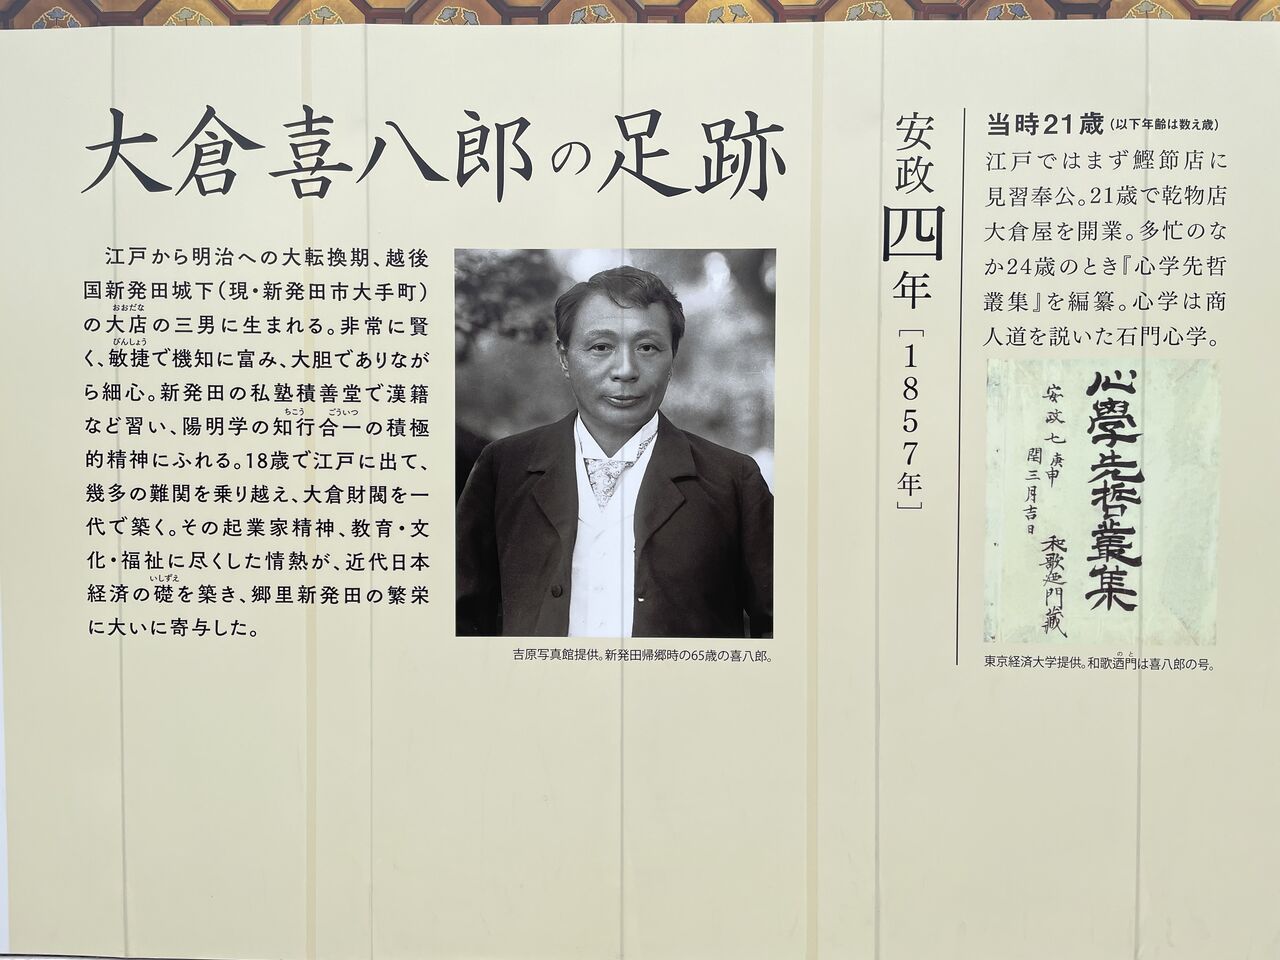 大倉喜八郎の足跡
江戸から明治への大転換期、越後
国新発田城下(現・新発田市大手町)
おおだな
の大店の三男に生まれる。非常に賢
びんしょう
く、敏捷で機知に富み、大胆でありなが
ら細心。新発田の私塾積善堂で漢籍
ちこう ごういつ
など習い、陽明学の知行合一の積極
的精神にふれる。18歳で江戸に出て、
幾多の難関を乗り越え、大倉財閥を一
代で築く。その起業家精神、教育・文
化・福祉に尽くした情熱が、近代日本
いしずえ
経済の礎を築き、郷里新発田の繁栄
に大いに寄与した。
吉原写真館提供。新発田帰郷時の65歳の喜八郎。
安政四年[1857年]
当時21歳(以下年齢は数え歳)
江戸ではまず鰹節店に
見習奉公。21歳で乾物店
大倉屋を開業。多忙のな
か24歳のとき『心学先哲
叢集』を編纂。心学は商
人道を説いた石門心学。
心學先哲叢集
安政七庚申
閏三月吉日
和歌廼門蔵
のと
東京経済大学提供。和歌廼門は喜八郎の号。